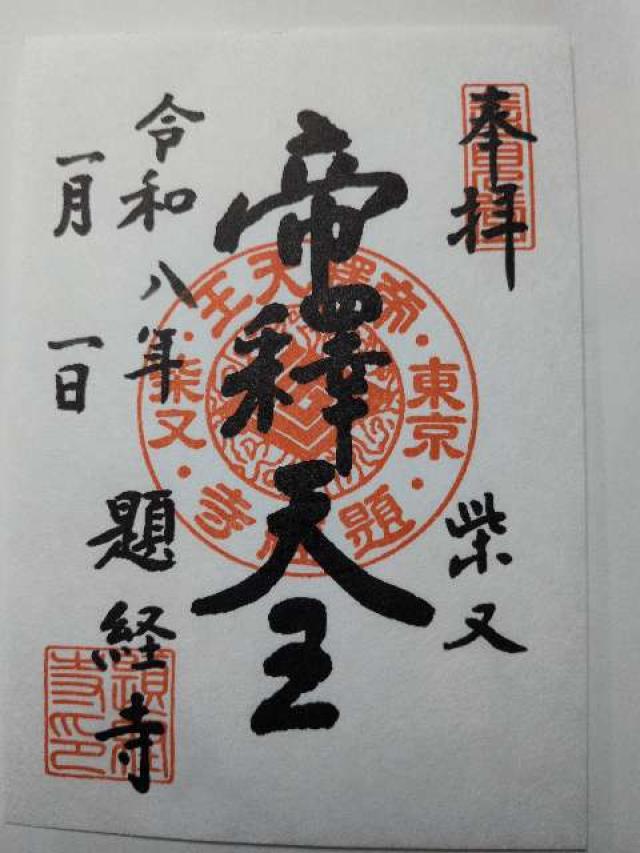 奉拝
柴又
帝釋天王
令和八年
一月一日
題経寺
帝釋天王
東京
柴又
題経寺